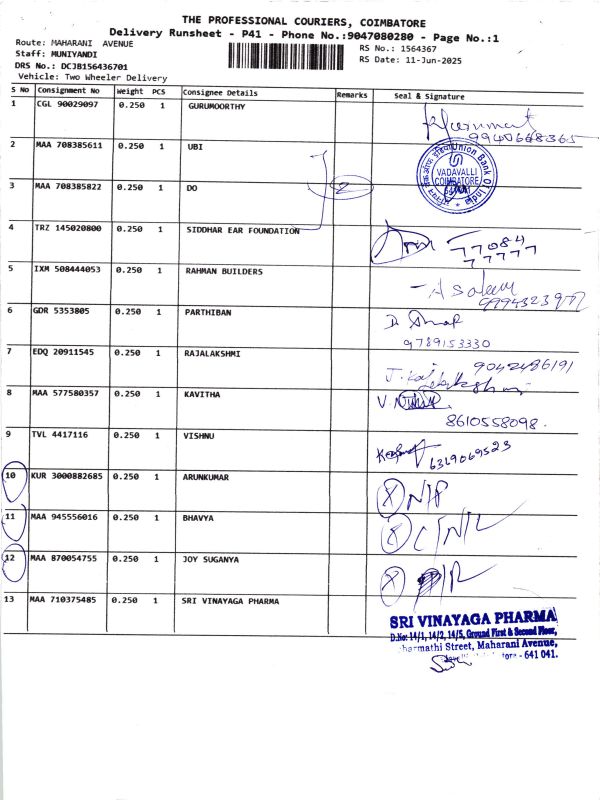 THE PROFESSIONAL COURIERS, COIMBATORE
Delivery Runsheet - P41 - Phone No.:9047080280 - Page No.:1
Route: MAHARANI AVENUE
Staff: MUNIYANDI
RS No.: 1564367
DRS No.: DCJB156436701
RS Date: 11-Jun-2025
Vehicle: Two Wheeler Delivery
S No Consignment No Weight PCS Consignee Details Remarks Seal & Signature
1 CGL 90029097 0.250 1 GURUMOORTHY
9940668365
2 MAA 708385611 0.250 1 UBI
Union Bank Of India
VADAVALLI
COIMBATORE
3 MAA 708385822 0.250 1 DO 2
4 TRZ 145020800 0.250 1 SIDDHAR EAR FOUNDATION
77084
77777
5 IXM 508444053 0.250 1 RAHMAN BUILDERS
A Saleem
6 GDR 5353805 0.250 1 PARTHIBAN
9789153330
7 EDQ 20911545 0.250 1 RAJALAKSHMI
9042486191
8 MAA 577580357 0.250 1 KAVITHA
8610558098.
9 TVL 4417116 0.250 1 VISHNU
6319069523
10 KUR 3000882685 0.250 1 ARUNKUMAR
X N/P
11 MAA 945556016 0.250 1 BHAVYA
X C/N/R
12 MAA 870054755 0.250 1 JOY SUGANYA
X
13 MAA 710375485 0.250 1 SRI VINAYAGA PHARMA
SRI VINAYAGA PHARMA
D.No: 14/1, 14/2, 14/5, Ground First & Second Floor,
Street, Maharani Avenue,
- 641 041.